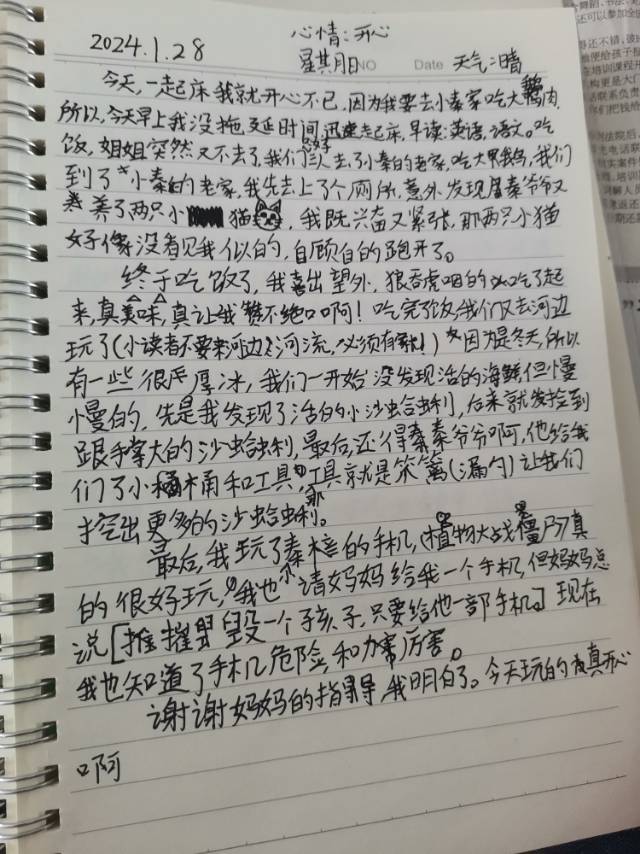 2024.1.28
心情:开心
星其月日 NO
Date 天气:晴
今天,一起床我就开心不已,因为我要去小秦家吃大鹅肉,
所以,今天早上我没拖延时间,迅速起床,早读:英语,语文。吃
饭,姐姐突然又不去了,我们三人去了小秦的老家,吃大黑鹅,我们
到了小秦的老家,我先去上了个厕所,意外发现秦爷爷又
养了两只小猫,我既兴奋又紧张,那两只小猫
好像没看见我似的,自顾自的跑开了。
终于吃饭了,我喜出望外,狼吞虎咽的吃了起
来,真美味,真让我赞不绝口啊!吃完了饭,我们又去河边
玩了(小读者不要来河边河流,必须有!)因为是冬天,所以
有一些很厚冰,我们一开始没发现活的海鲜但慢
慢的,先是我发现了活的小沙蛤蜊,后来就发捡到
跟手掌大的沙蛤蜊,最后,还得秦秦爷爷啊,他给我
们了小桶和工具,工具就是笊篱(漏勺)让我们
挖出更多的沙蛤蜊。
最后,我玩了秦的手机,(植物大战僵尸)真
的很好玩,我也请妈妈给我一个手机,但妈妈总
说[摧毁一个孩子,只要给他一部手机。]现在
我也知道了手机危险和厉害。
谢谢妈妈的指导,我明白了。今天玩的真开心
啊